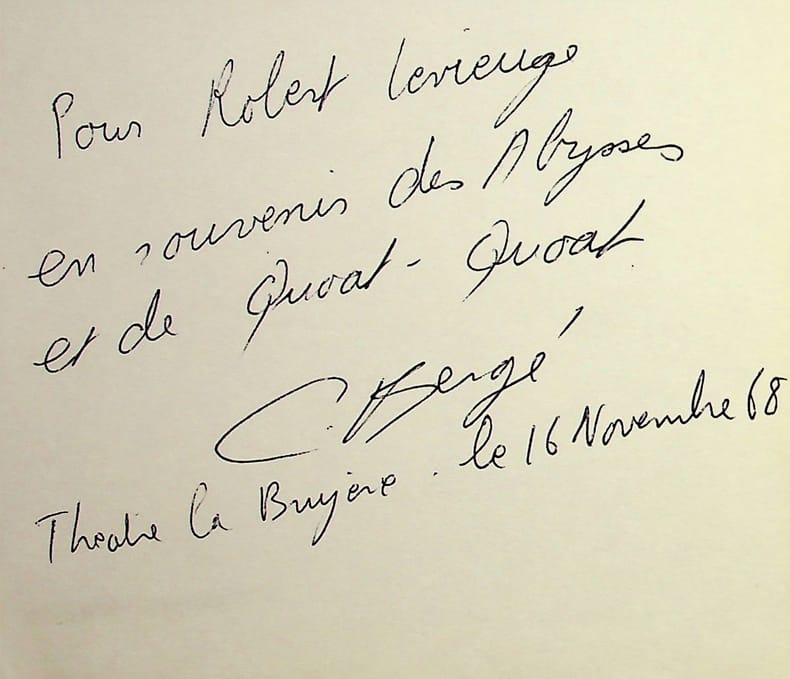 Pour Robert Levieuge
en souvenir des Abysses
et de Quoat-Quoat
C. Bergé
Theatre la Bruyère. le 16 Novembre 68